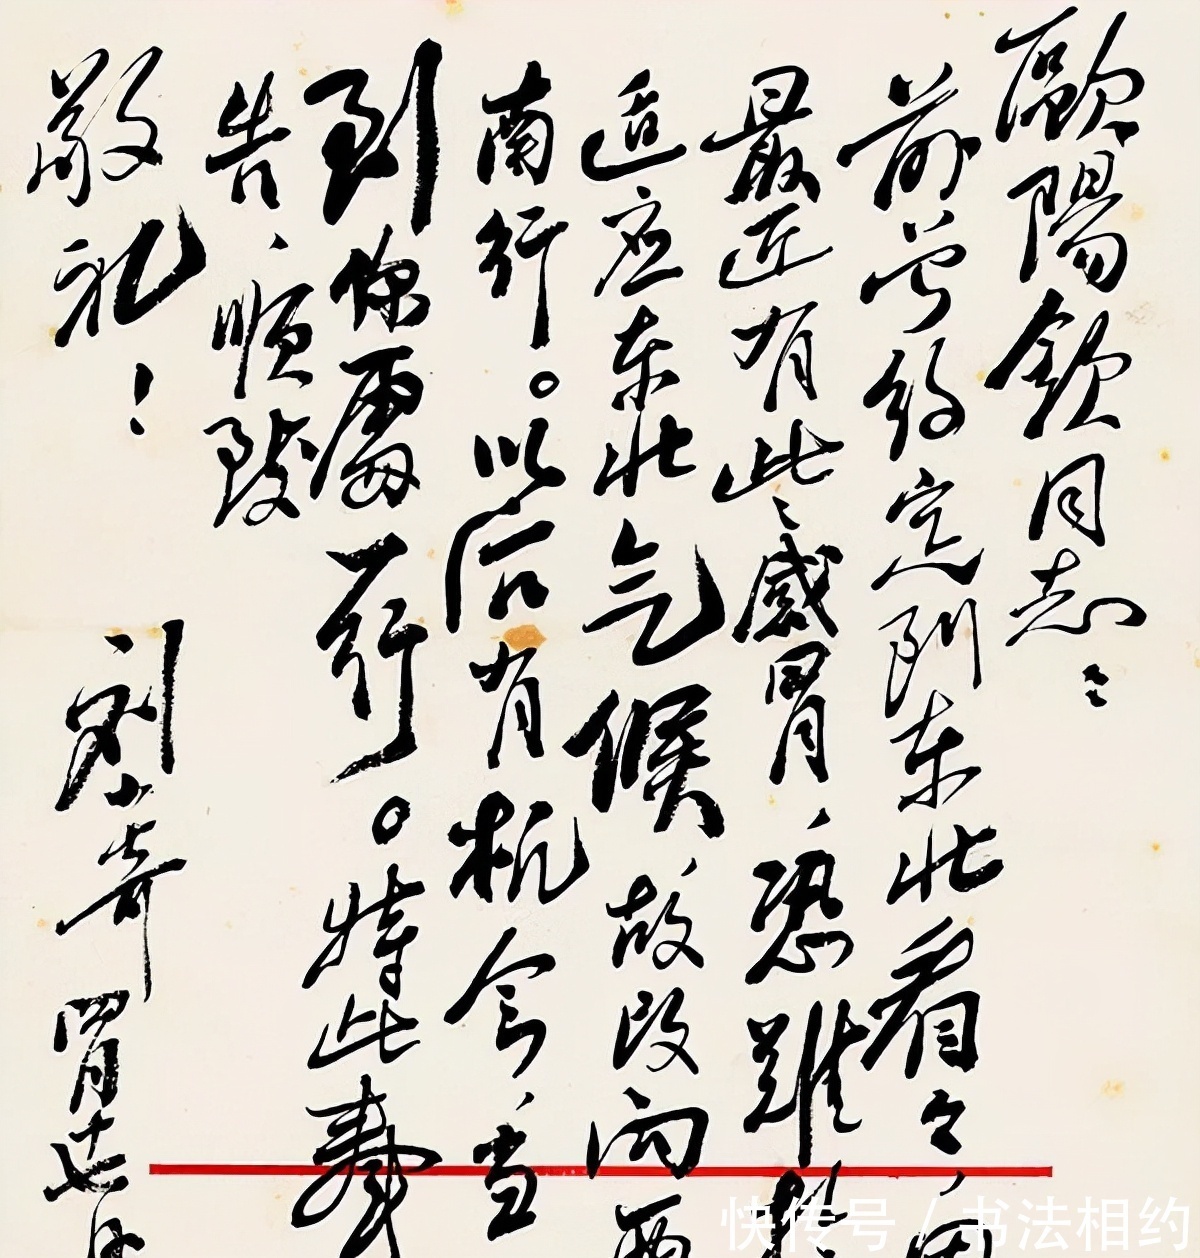 歐陽欽同志：
前曾约定到东北看看，因
最近有些感冒，恐难
适应东北气候，故改向西
南行。以后有机会当
到你處一行。特此奉
告，順致
敬礼！
刘少奇 四月十七日
快传号 / 书法相约